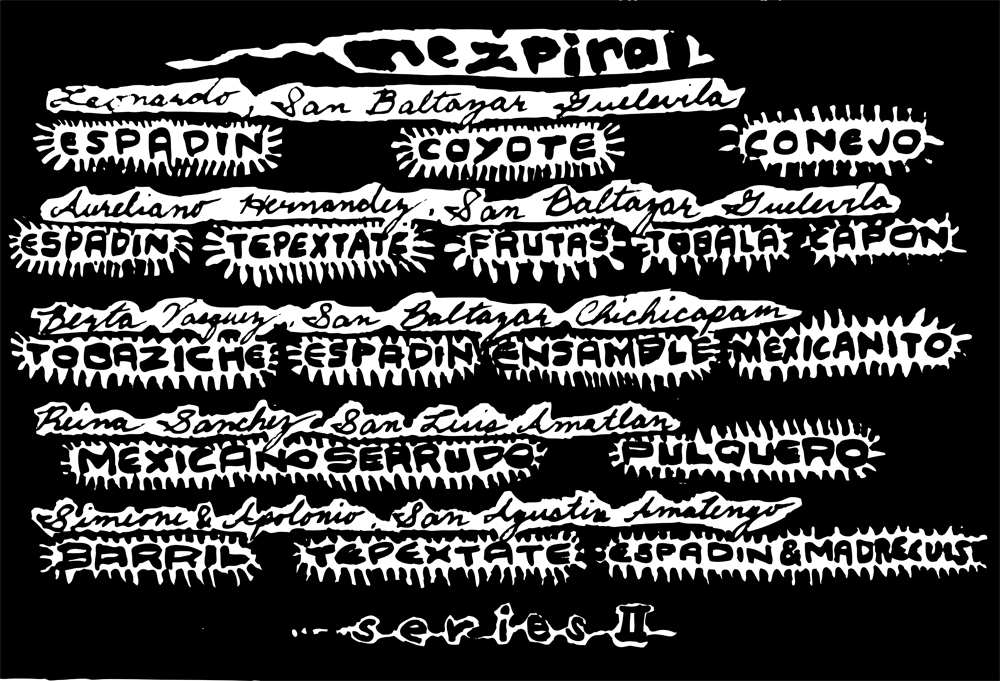 mezpiral
Leonardo, San Baltazar Guelevila
ESPADIN COYOTE CONEJO
Aureliano Hernandez, San Baltazar Guelevila
ESPADIN TEPEXTATE FRUTAS TOBALA CAPON
Berta Vasquez, San Baltazar Chichicapam
TOBAZICHE ESPADIN ENSAMBLE MEXICANITO
Reina Sanchez San Luis Amatlan
MEXICANO SERRUDO PULQUERO
Simeone & Apolonio, San Agustin Amatengo
BARRIL TEPEXTATE ESPADIN & MADRECUIST
series II